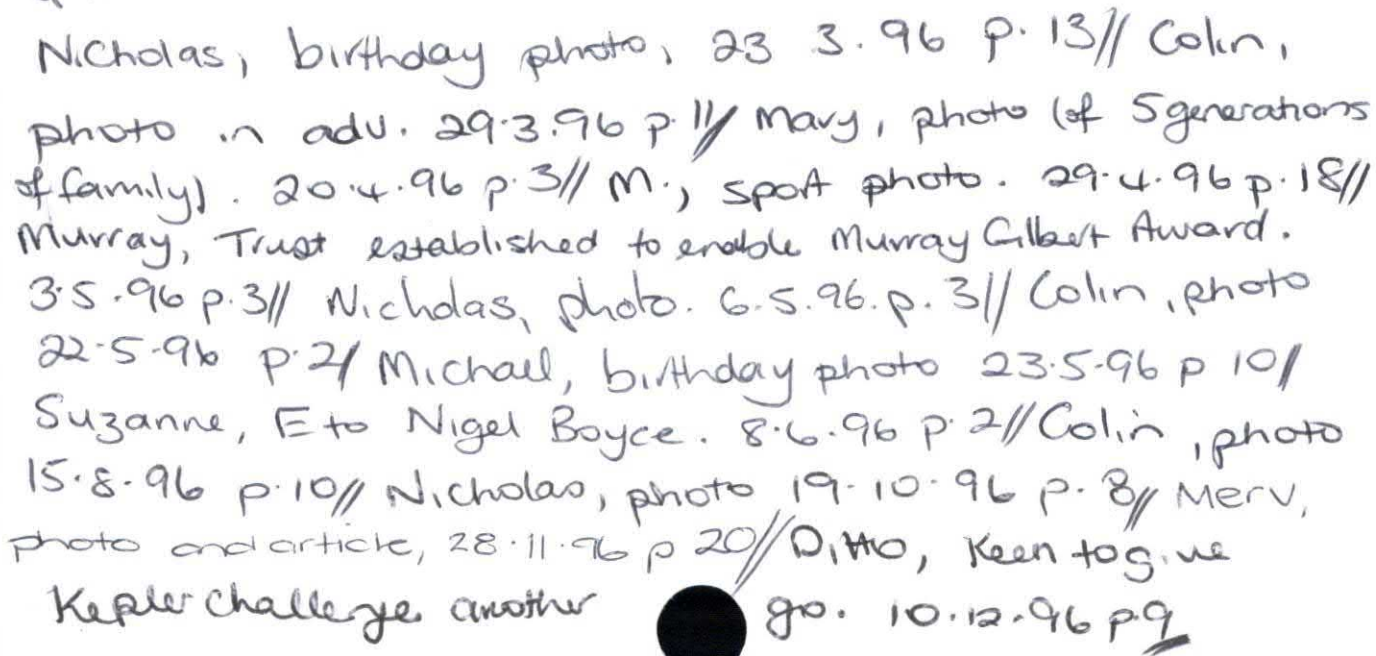 Nicholas, birthday photo, 23 3.96 p.13// Colin,
photo in adv. 29.3.96 p.11// Mary, photo (of 5 generations
of family). 20.4.96 p.3// M., sport photo. 29.4.96 p.18//
Murray, Trust established to enable Murray Gilbert Award.
3.5.96 p.3// Nicholas, photo. 6.5.96. p.3// Colin, photo
22.5.96 p.2/ Michael, birthday photo 23.5.96 p 10/
Suzanne, E to Nigel Boyce. 8.6.96 p.2// Colin, photo
15.8.96 p.10// Nicholas, photo 19.10.96 p.8// Merv,
photo and article, 28.11.96 p 20// Ditto, Keen to give
Kepler challenge another go. 10.12.96 p.9